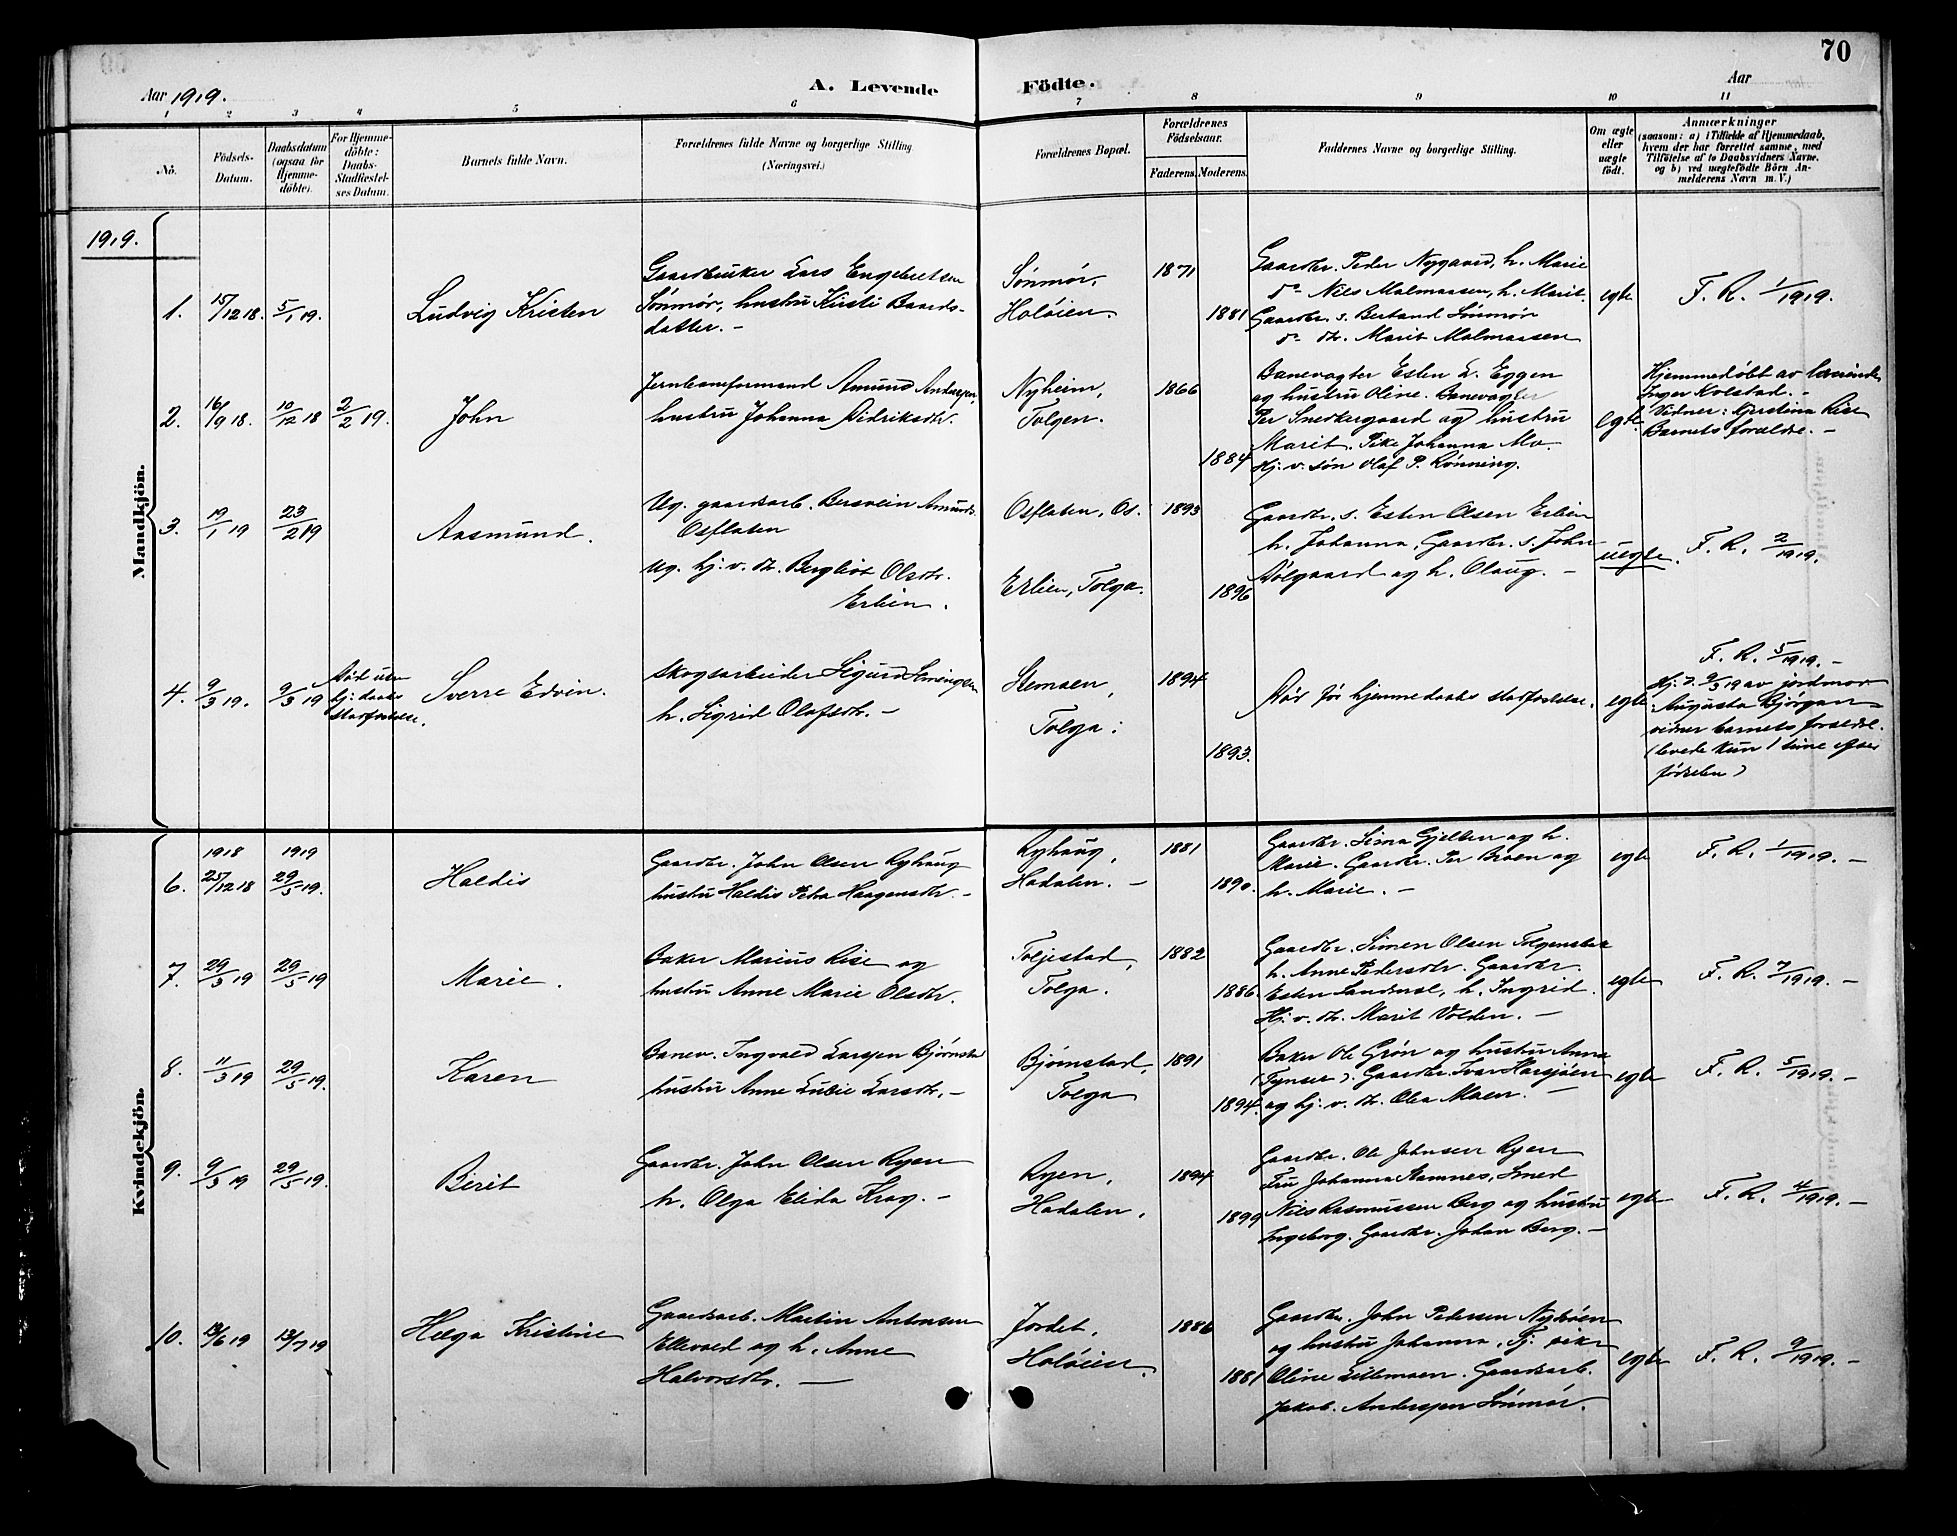 70
Aar 1919.
A. Levende Födte.
Aar
1 2 3 4 5 6 7 8 9 10 11
No.
Födsels-
Datum.
Daabsdatum
(ogsaa for
Hjemme-
döbte).
For Hjemme-
döbte:
Daabs-
Stadfæstel-
ses Datum.
Barnets fulde Navn.
Forældrenes fulde Navne og borgerlige Stilling
(Næringsvei.)
Forældrenes Bopæl.
Forældrenes
Födselsaar.
Faderens. Moderens.
Faddernes Navne og borgerlige Stilling.
Om ægte
eller
uægte
födt.
Anmærkninger
(saasom: a) i Tilfælde af Hjemmedaab,
hvem der har forrettet samme, med
Tilföielse af to Daabsvidners Navne,
og b) ved uægtefödte Börn An-
melderens Navn m. V.)
Mandkjön.
1919.
1.
15/12 18.
5/1 19.
Ludvig Kristen
Gaardbruker Lars Engebretsen
Sönmör, hustru Kirsti Baards-
datter. -
Sönmör,
Holöien.
1871
1881
Gaardbr. Peder Nygaard, h. Marie
do Nils Malmaasen, h. Marit.
Gaardbr. s. Bertand Sönmör
do dt. Marit Malmaasen
egte
F. R. 1/1919.
2.
16/9 18.
10/12 18
2/2 19.
John
Jernbaneformand Amund Andersen,
hustru Johanna Didriksdtr.
Nyheim,
Tolgen.
1866
1884
Banevagter Esten L. Eggen
og hustru Oline. Banevagter
Per Snedkergaard og hustru
Marit. Pike Johanna Mo.
Hj. v. søn Olaf P. Rønning.
egte.
Hjemmedöbt av
Inger Kolstad. -
Vidner: Kjerstina Rise
Barnets forældre. -
3.
19/1 19
23/2 19
Aasmund.
Ug. gaardsarb. Bersvein Amunds.
Osflaten
Ug. hj. v. dt. Bergliot Olsdtr.
Erlien.
Osflaten, Os.
Erlien, Tolga.
1893
1896
Gaardbr. s. Esten Olsen Erlien
h. Johanna, Gaardbr. s. John
Dölgaard og h. Olaug. -
uegte.
F. R. 2/1919.
4.
9/3 19.
9/3 19
Död uten
hj. daabs
stadfæstelse.
Sverre Edvin.
Skogsarbeider Sigurd Simensen
h. Sigrid Olafsdtr. -
Stemoen,
Tolga:
1894
1893.
Död för hjemmedaabs stadfestelse.
egte
F. R. 5/1919. -
Hj. d. 9/3 19 av jordmor
Augusta Björgan
vidner barnets forældre.
(levede kun 1 time efter
födselen)
Kvindekjön.
6.
1918
25/12 18
1919
29/5 19.
Haldis
Gaardbr. John Olsen Ryhaug
hustru Haldis Petra Haagensdtr. -
Ryhaug,
Hodalen. -
1881
1890.
Gaardbr. Sima Gjelten og h.
Marie. Gaardbr. Per Broen og
h. Marie. -
egte
F. R. 1/1919. -
7.
29/3 19
29/5 19
Marie.
Baker Marius Rise og
hustru Anne Marie Olsdtr.
Toljestad,
Tolga.
1882
1886.
Gaardbr. Simen Olsen Tolgensbak
h. Anne Pedersdtr. Gaardbr.
Esten h. Ingrid.
Hj. v. dt. Marit Volden. -
egte
F. R. 7/1919. -
8.
11/3 19
29/5 19.
Karen
Banev. Ingvald Larssen Bjørnstad
hustru Anne Lubie Larsdtr. -
Bjørnstad,
Tolga
1891
1894.
Baker Ole Grøn og hustru Anna
(Tynset). Gaardbr. Ivar Harsjøen
og hj. v. dt. Olea Moen. -
egte
F. R. 5/1919. -
9.
9/3 19
29/5 19.
Birit
Gaardbr. John Olsen Ryen
h. Olga Elida Krog. -
Ryen,
Hodalen.
1894
1899
Gaardbr. Ole Johnsen Ryen
Fru Johanna Aamnes, Smed
Nils Rasmussen Berg og hustru
Ingeborg. Gaardbr. Johan Berg. -
egte
F. R. 4/1919. -
10.
/6 19
13/7 19
Helga Kristine
Gaardsarb. Martin Antonsen
Ellevold og h. Anne
Halvorsdtr. -
Jordet,
Holöien.
1886
1881
Gaardbr. John Pedersen Nyhöen
og hustru Johanna, Tj. pike
Oline Lillemoen. Gaardsarb.
Jakob. Anderssen Sönmör.
egte
F. R. 9/1919. -